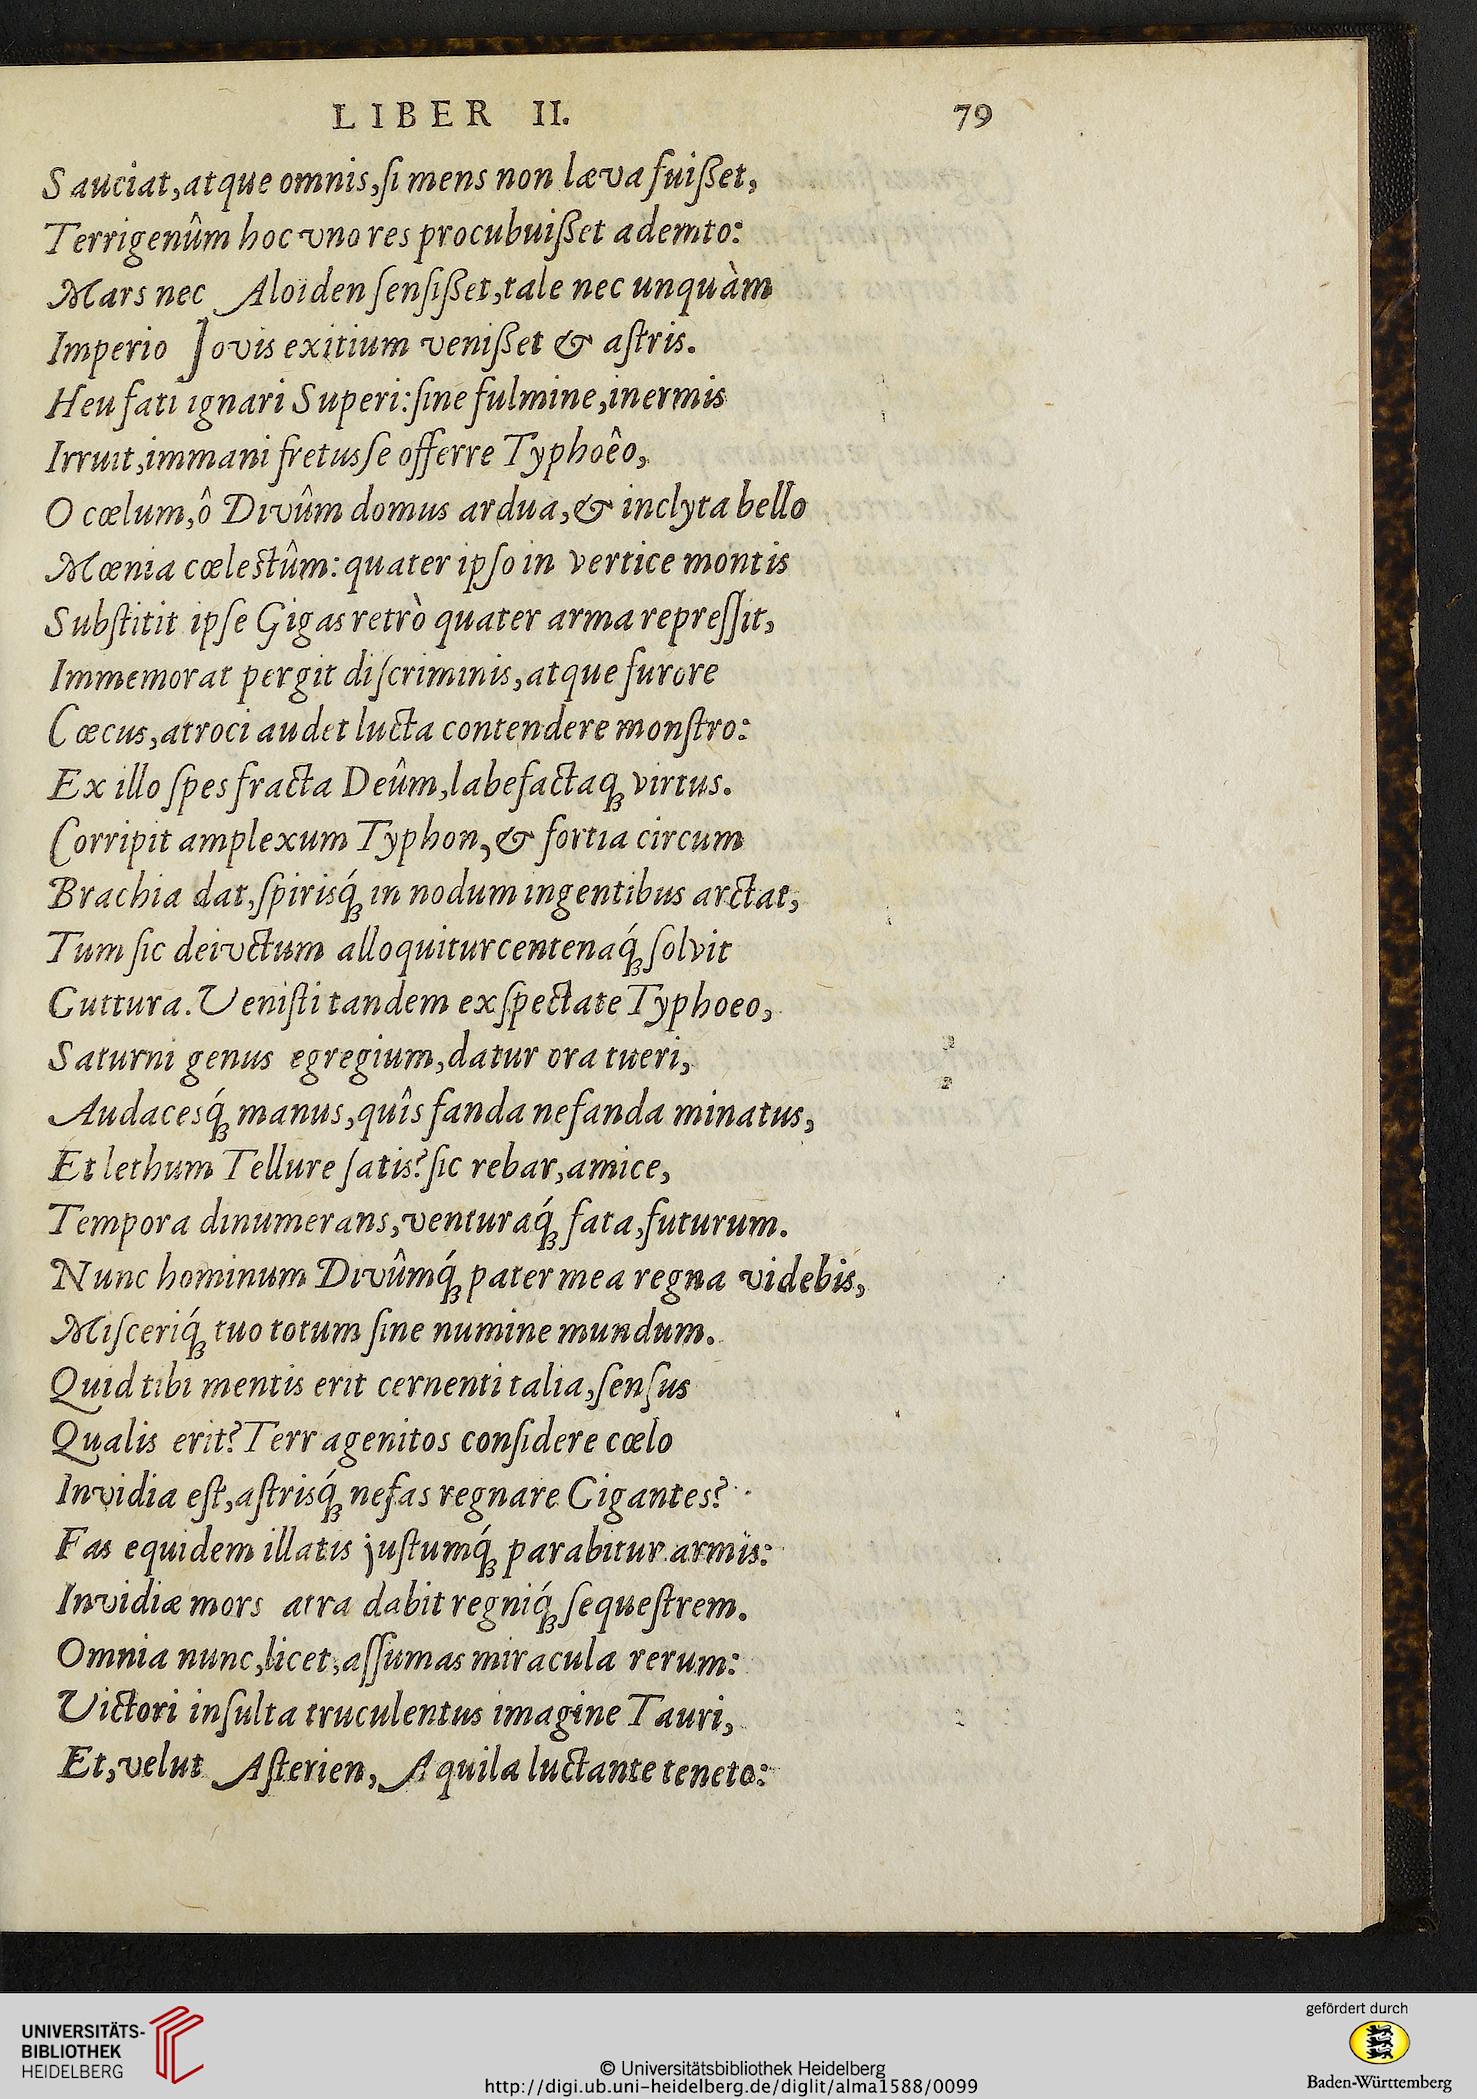 LIBER II. 79
Sauciat, atque omnis, ſi mens non læva fuiſſet,
Terrigenûm hoc vno res procubuiſſet ademto:
Mars nec Aloïden ſenſiſſet, tale nec unquàm
Imperio Jovis exitium veniſſet & aſtris.
Heu fati ignari Superi: ſine fulmine, inermis
Irruit, immani fretus ſe offerre Typhoêo,
O cœlum, ô Divûm domus ardua, & inclyta bello
Mœnia cœleſtûm: quater ipſo in vertice montis
Subſtitit ipſe Gigas retrò quater arma repreſſit,
Immemor at pergit diſcriminis, atque furore
Cœcus, atroci audet lucta contendere monſtro:
Ex illo ſpes fracta Deûm, labefactaq; virtus.
Corripit amplexum Typhon, & fortia circum
Brachia dat, ſpirisq́; in nodum ingentibus arctat,
Tum ſic deivctum alloquitur centenaq́; ſolvit
Guttura. Veniſti tandem exſpectate Typhoeo,
Saturni genus egregium, datur ora tueri,
Audacesq́; manus, quîs fanda nefanda minatus,
Et lethum Tellure ſatis? ſic rebar, amice,
Tempora dinumerans, venturaq́; fata, futurum.
Nunc hominum Divûmq́; pater mea regna videbis,
Miſceriq́; tuo totum ſine numine mundum.
Quid tibi mentis erit cernenti talia, ſenſus
Qualis erit? Terragenitos conſidere cœlo
Invidia eſt, aſtrisq́; nefas regnare Gigantes?
Fas equidem illatis juſtumq́; parabitur armis:
Invidiæ mors atra dabit regniq́; ſequeſtrem.
Omnia nunc, licet, aſſumas miracula rerum:
Victori inſulta truculentus imagine Tauri,
Et, velut Aſterien, Aquila luctante teneto:
UNIVERSITÄTS-
BIBLIOTHEK
HEIDELBERG
© Universitätsbibliothek Heidelberg
http://digi.ub.uni-heidelberg.de/diglit/alma1588/0099
gefördert durch
Baden-Württemberg